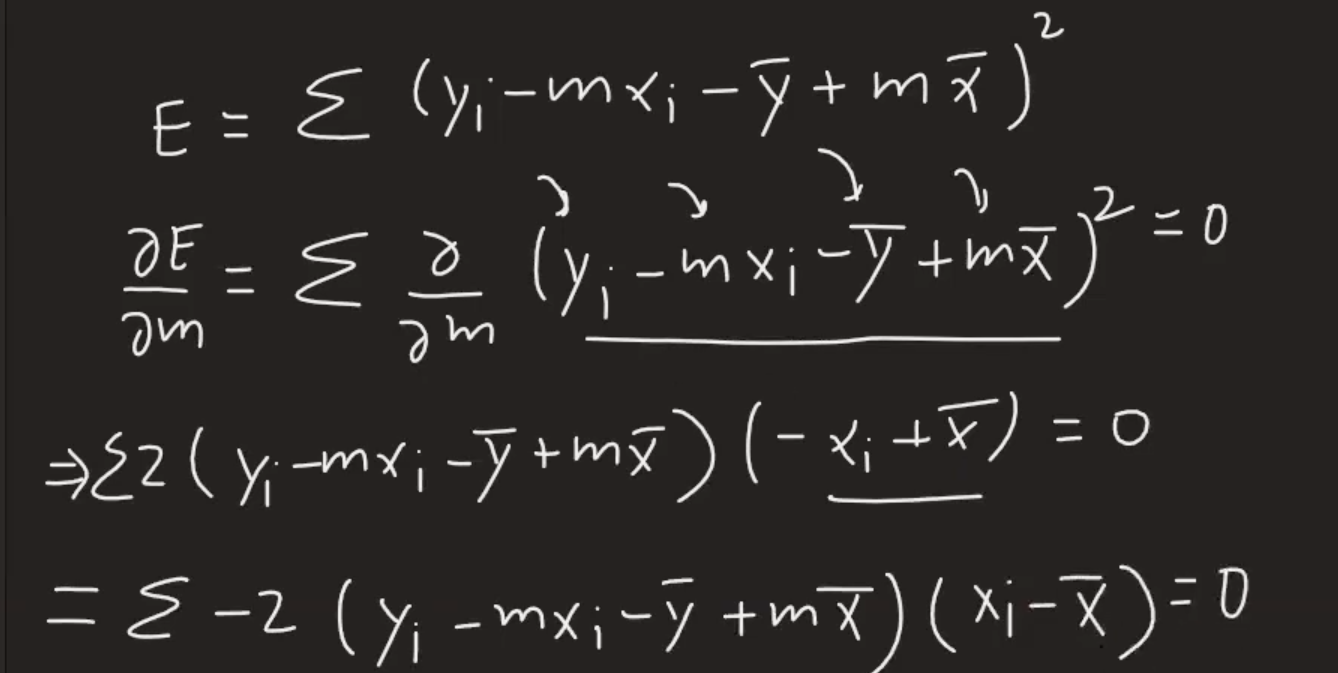 E = Σ (yᵢ − mxᵢ − ȳ + mx̄)²
∂E/∂m = Σ ∂/∂m (yᵢ − mxᵢ − ȳ + mx̄)² = 0
⇒ Σ2(yᵢ − mxᵢ − ȳ + mx̄)(−xᵢ + x̄) = 0
= Σ −2 (yᵢ − mxᵢ − ȳ + mx̄)(xᵢ − x̄) = 0